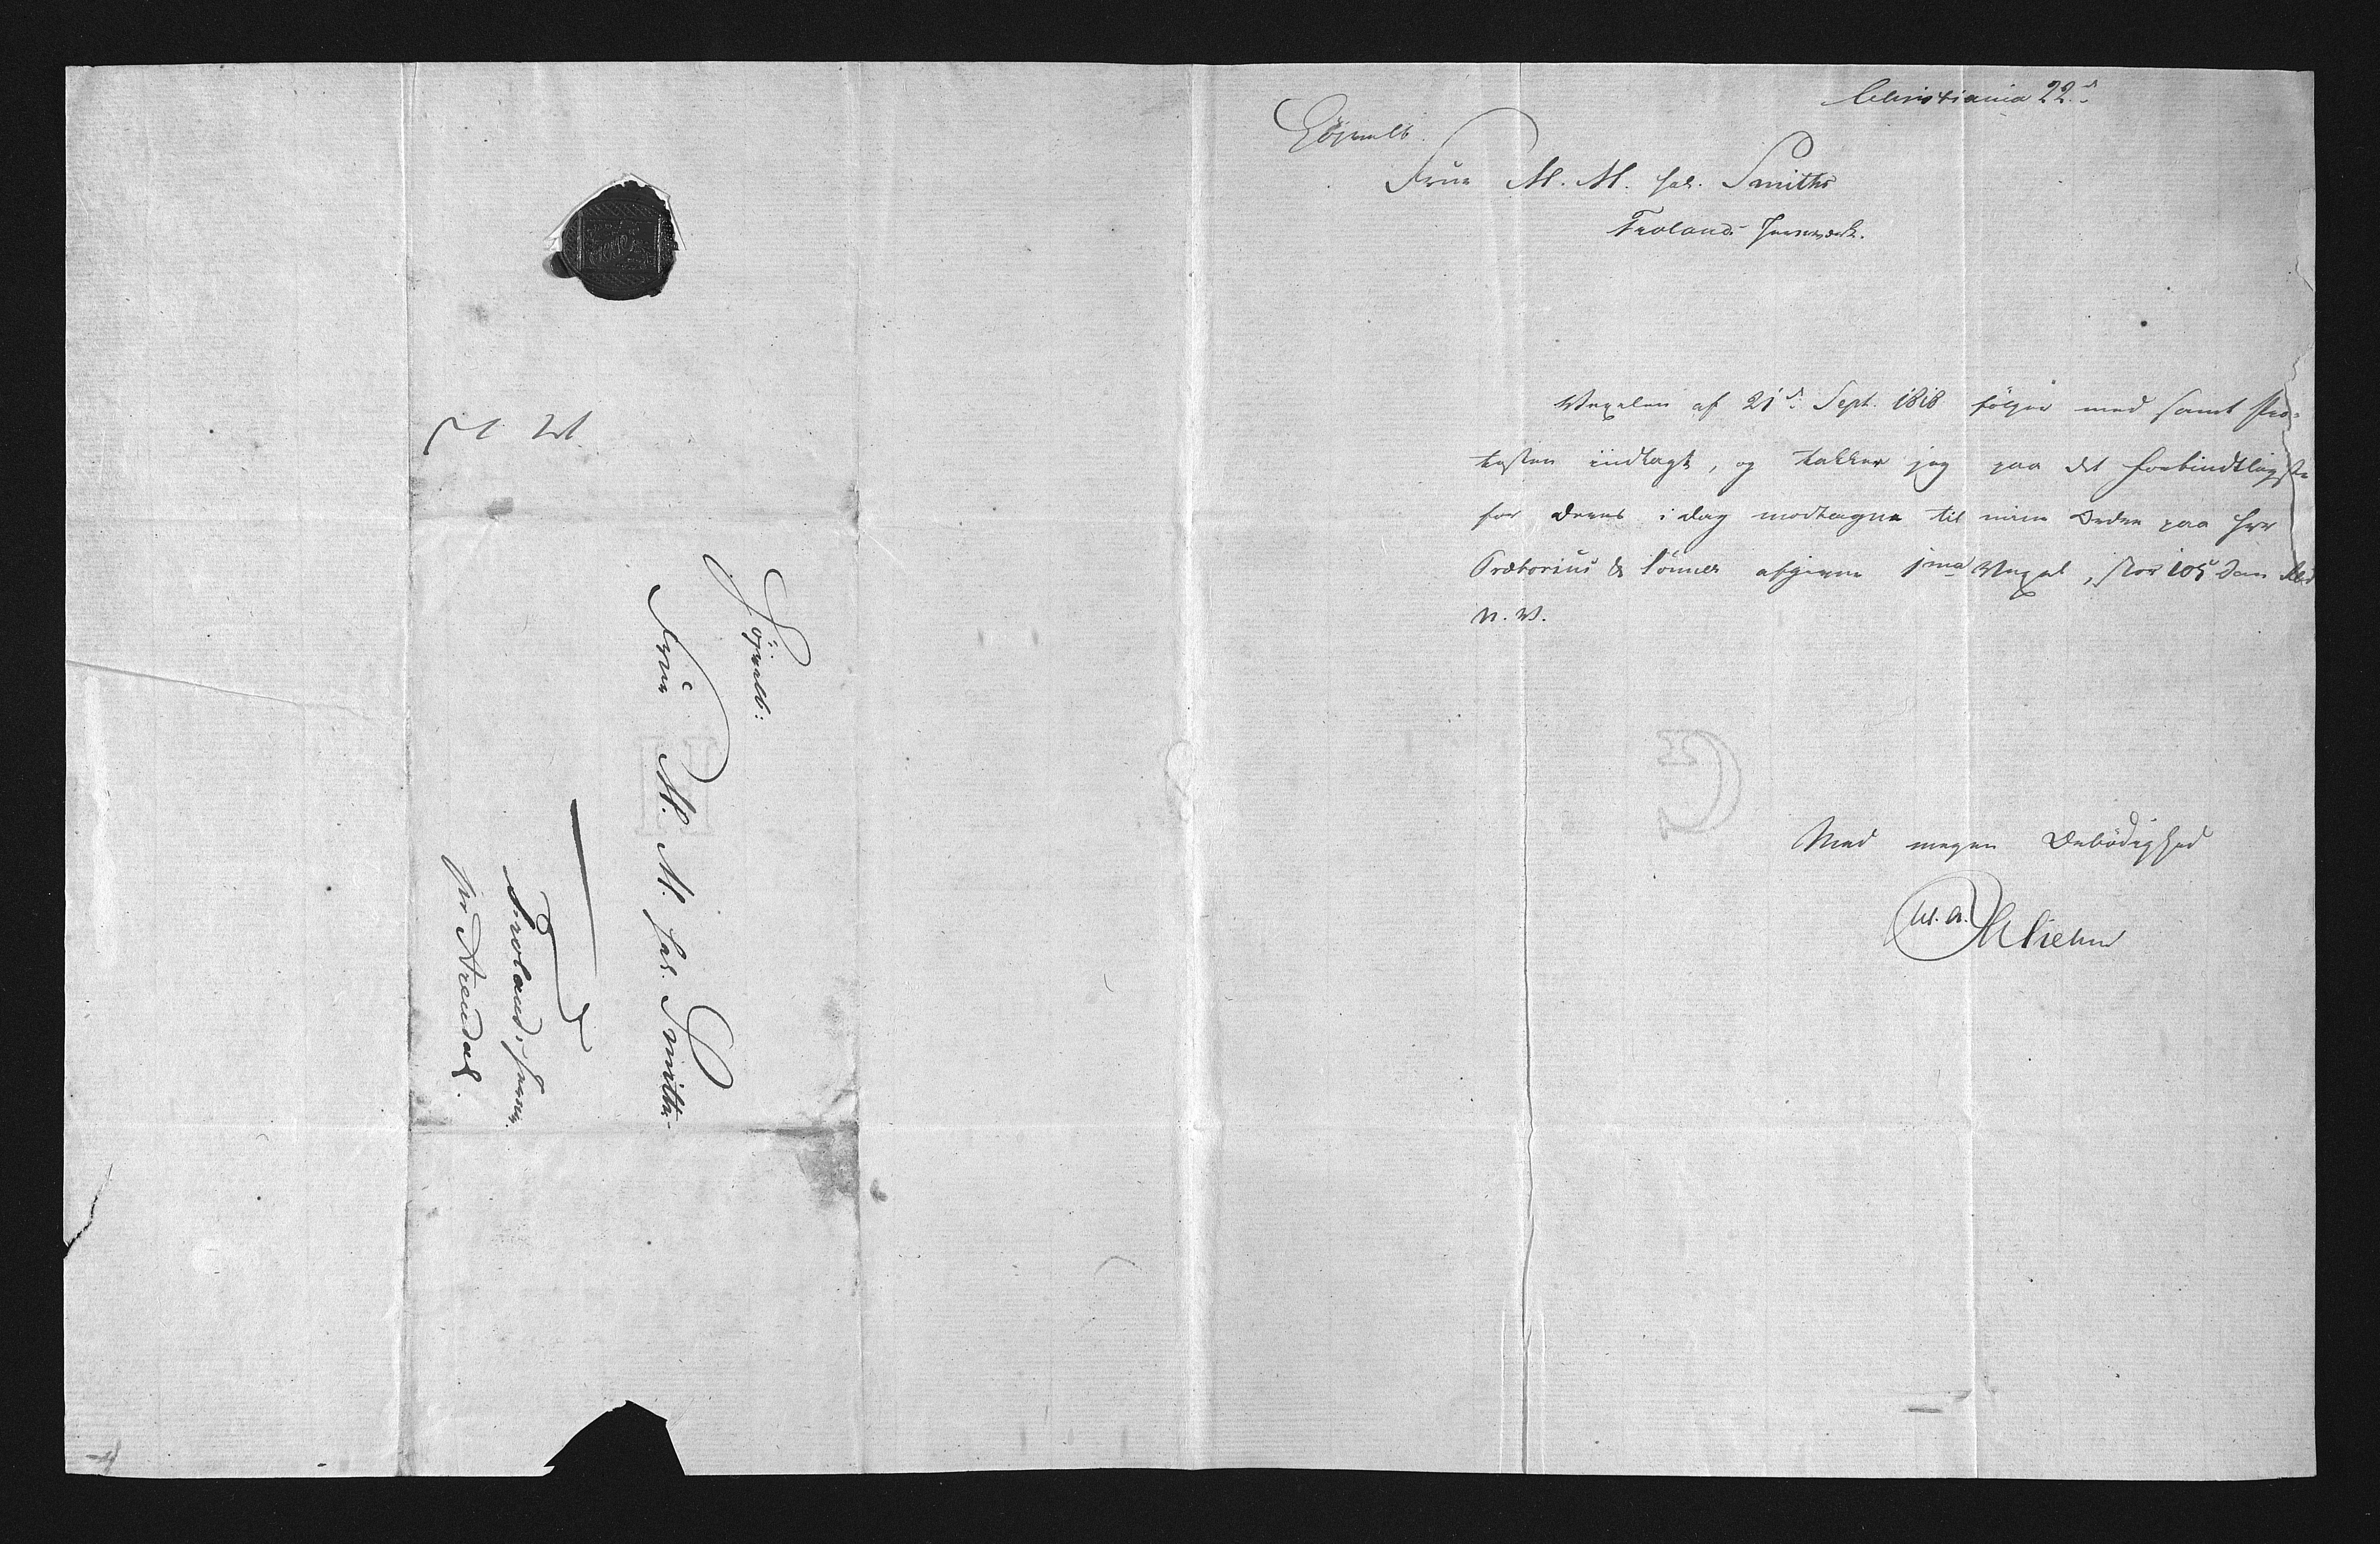 Christiania 22d
Højvelb.
Frue M. M. sal. Smiths
Frolands Jernværk.
Vexelen af 21d Sept. 1818 følger med samt Pro=
testen indlagt, og takker jeg paa det forbindtligste
for deres i dag modtagne til min Ordre paa Hrr
Prætorius & Sønner afgivne 1ma Vexel, stor 105 Dan Rbd
N. V.
Med megen Ærbødighed
Højvelb:
Frue M. M. sal. Smiths
Frolands Jernv.
pr Arendal.